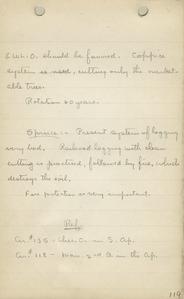 & Wh. O. should be favored. Coppice
system is used, cutting only the market-
able trees.
Rotation 60 years.
Spruce :- Present system of logging
very bad. Railroad logging with clean
cutting is practised, followed by fire, which
destroys the soil.
Fire protection is very important.
Ref.
Cir. #135 - Ches. C. in S. Ap.
Cir. #118 - Man. 2nd G. in the Ap.
119